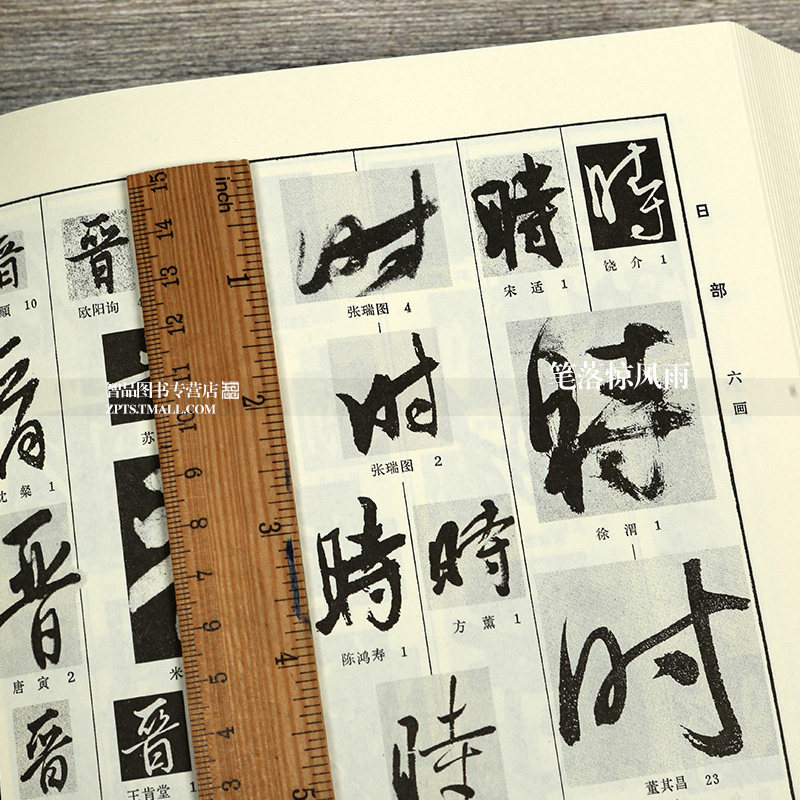 日部 六画
時
饶介 1
時
宋适 1
時
徐渭 1
时
董其昌 23
时
张瑞图 4
时
张瑞图 2
時
方薰 1
時
陈鸿寿 1
時
晋
欧阳询
苏
米
晋
王肯堂
晋
10
晋
沈粲 1
晋
唐寅 2
晋
inch
1
2
3
4
5
15
14
13
12
11
10
9
8
7
6
5
4
3
智品图书专营店
ZPTS.TMALL.COM
笔落惊风雨